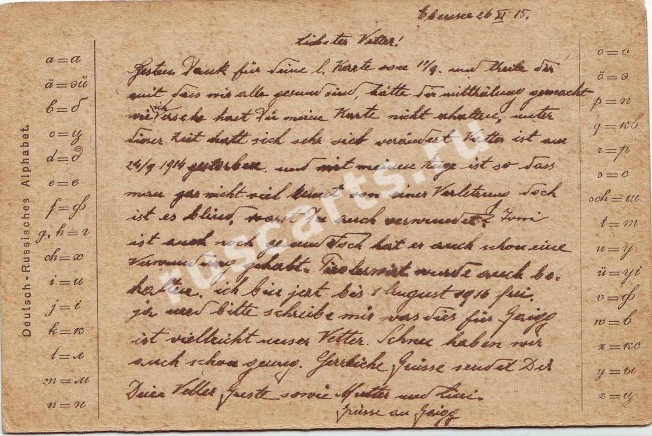 Ebensee 26 XI 15.
Liebster Vetter!
Besten Dank für deine l. Karte vom 11/9. und theile dir
mit dass wir alle gesund sind, hätte dir mittheilung gemacht
wie ich sehe hast Du meine Karte nicht erhalten, unter
dieser Zeit hatt sich sehr viel verändert Vatter ist am
24/9 1914 gestorben und mit meinem Auge ist so dass
man gar nicht viel kennt von einer Verletzung doch
ist es blind, warst Du auch verwundet? Toni
ist auch noch gesund doch hat er auch schon eine
Verwundung gehabt. Tirolerwirt wurde auch be-
halten. ich bin jezt bis 1 August 1916 frei.
ja und bitte schreibe mir was dies für Gaigg
ist vielleicht unser Vetter. Schnee haben wir
auch schon genug. Herzliche Grüsse sendet Dir
Dein Vetter sowie Mutter und
Grüsse an Gaigg
Deutsch-Russisches Alphabet.
a = а
ä = эй
b = б
c = ц
d = д
e = е
f = ф
g, h = г
ch = х
i = и
j = і
k = к
l = л
m = м
n = н
o = о
ö = э
p = п
q = кв
r = р
s = с
sch = ш
t = т
u = у
ü = уі
v = ф
w = в
x = кс
y = ы
z = ц
ruscarts.ru